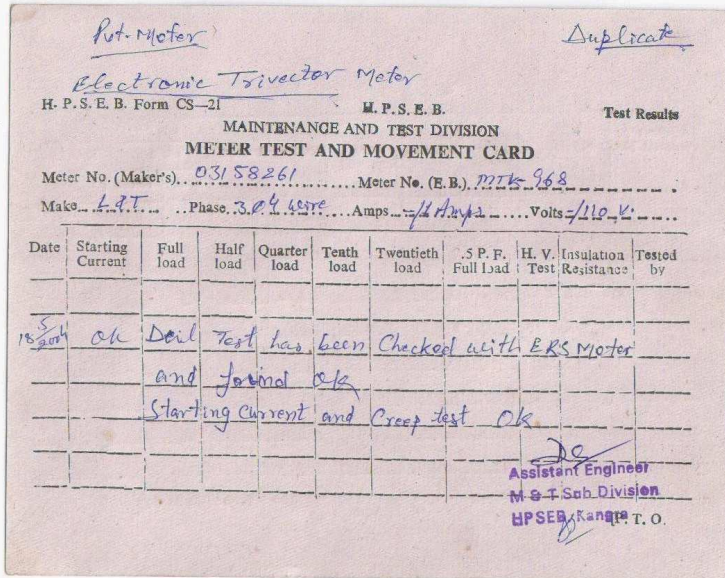 Pvt. Moter
Duplicate
Electronic Trivector Meter
H. P. S. E. B. Form CS—21 H. P. S. E. B. Test Results
MAINTENANCE AND TEST DIVISION
METER TEST AND MOVEMENT CARD
Meter No. (Maker's) 03158261 Meter No. (E. B.) MTK-968
Make L&T Phase 3 Ø 4 wire Amps -/1 Amps Volts -/110 V.
Date Starting Current Full load Half load Quarter load Tenth load Twentieth load .5 P. F. Full Load H. V. Test Insulation Resistance Tested by
18 5/2004 Ok Dail Test has been Checked with ERS Moter
and found Ok
Starting Current and Creep test Ok
Assistant Engineer
M & T Sub Division
HPSEB, Kangra
P. T. O.